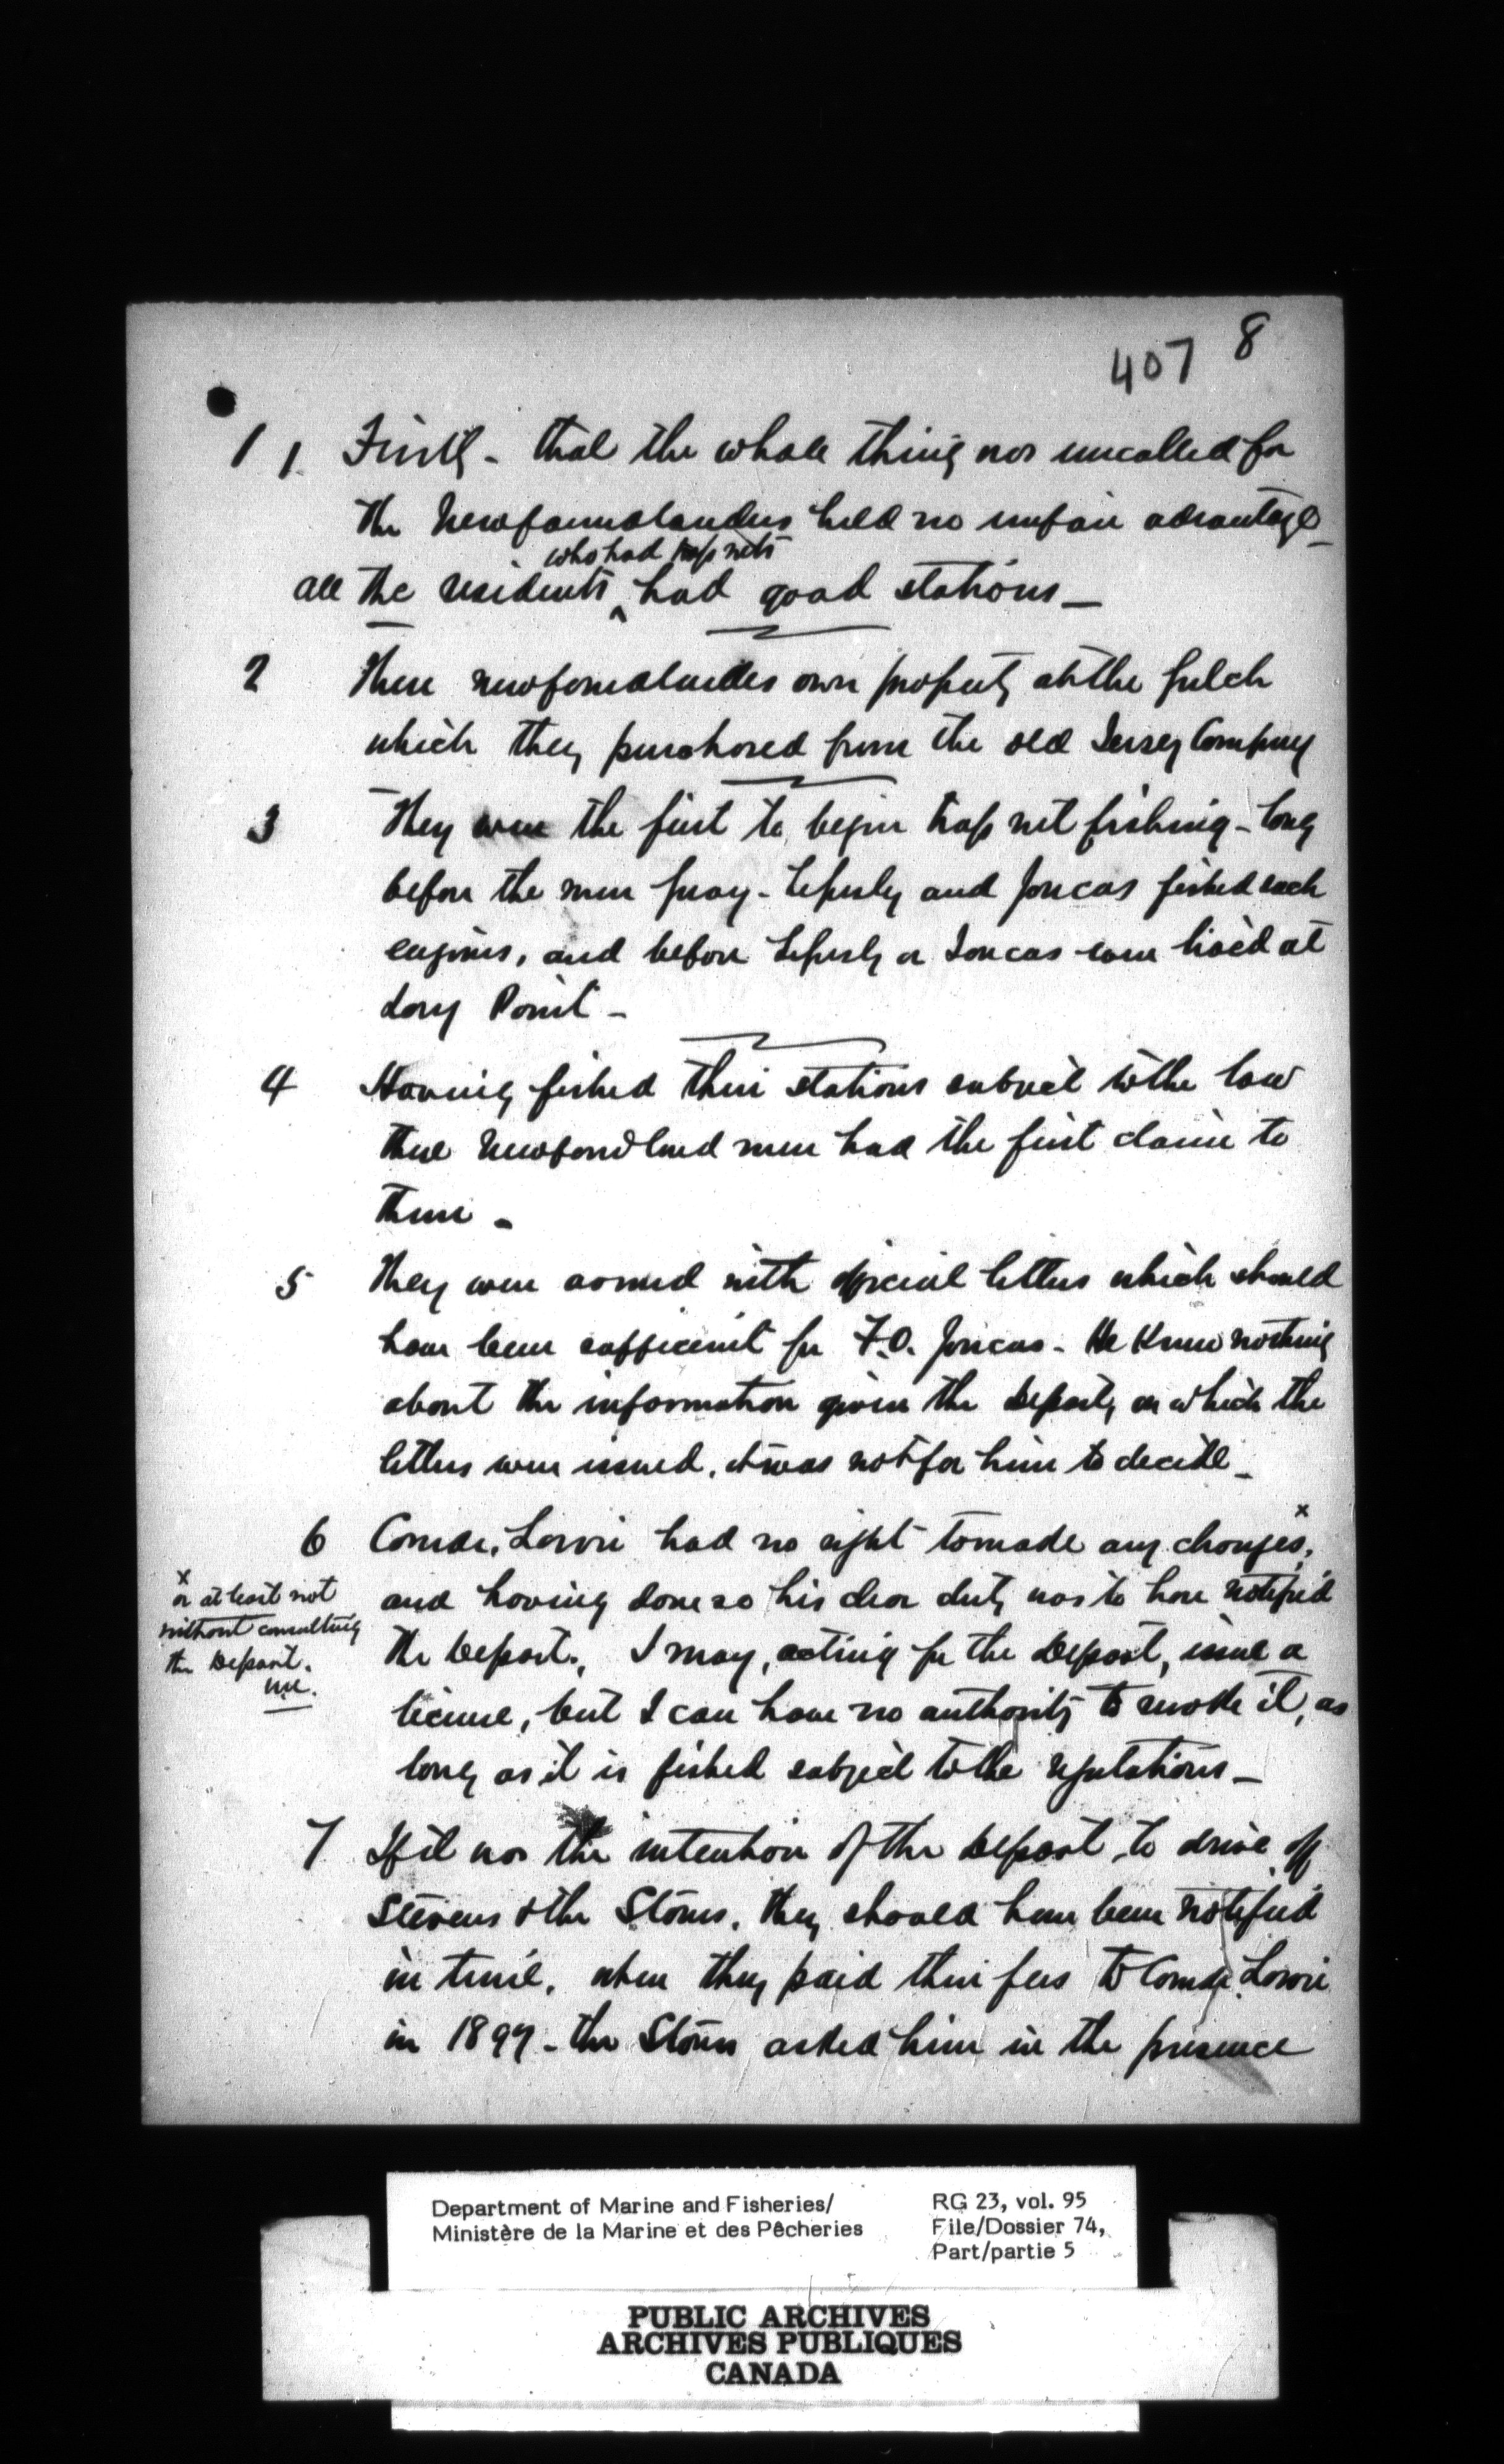 407 8
1 1. Firstly - that the whole thing was uncalled for
the Newfoundlanders held no unfair advantage -
who had trap nets
all the residents ^ had good stations -
2 These newfoundlanders own property at the Gulch
which they purchased from the old Jersey Company
3 They were the first to begin trap net fishing - long
before the men Gray - and Joncas fished such
engines, and before or Joncas ever lived at
Long Point -
4 Having fished their stations subject to the law
these Newfoundland men had the first claim to
them -
5 They were armed with official letters which should
have been sufficient for F.O. Joncas - He knew nothing
about the information given the Deputy on which the
letters were issued. it was not for him to decide -
6 Comdr. had no right to make any changes x,
x or at least not
without consulting
the Depart.
and having done so his clear duty was to have notified
the Depart., I may, acting for the Depart, issue a
license, but I can have no authority to revoke it, as
long as it is fished subject to the regulations -
7 If it was the intention of the Depart, to drive off
Stevens & the Stones. they should have been notified
in time. when they paid their fees to Comdr.
in 1897 - the Stones asked him in the presence
Department of Marine and Fisheries/
Ministère de la Marine et des Pêcheries
RG 23, vol. 95
File/Dossier 74,
Part/partie 5
PUBLIC ARCHIVES
ARCHIVES PUBLIQUES
CANADA